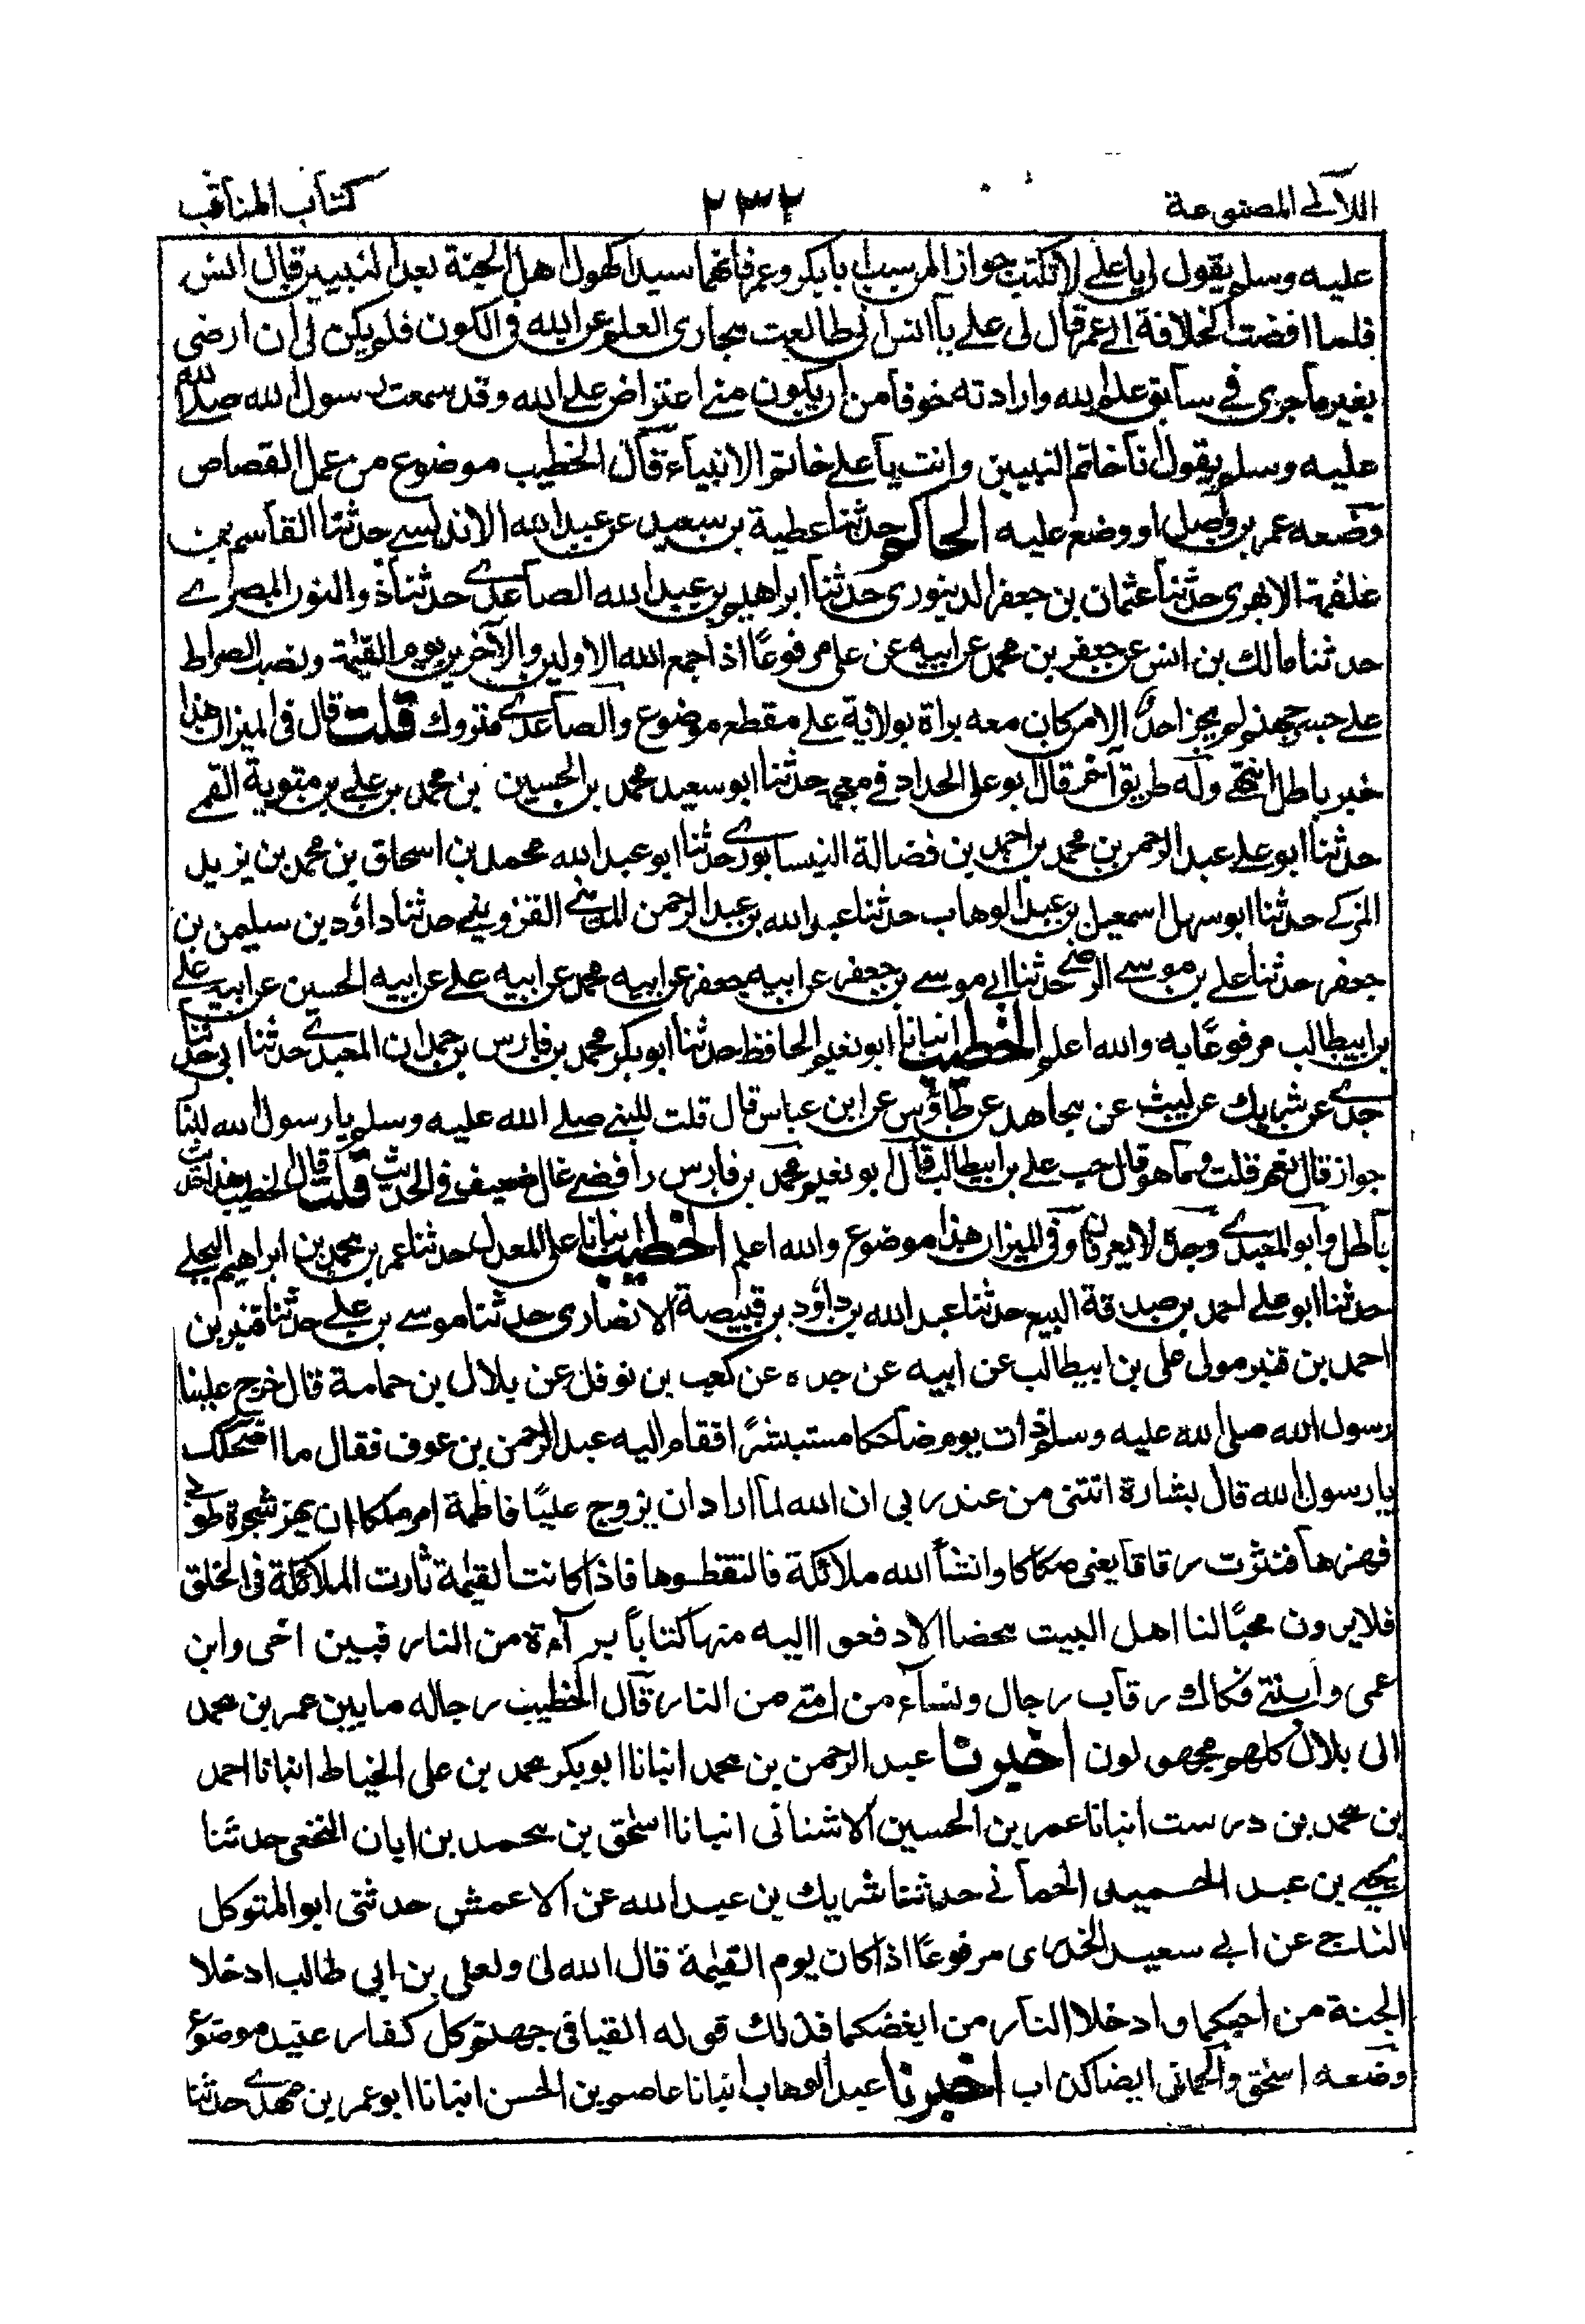 اللآلى المصنوعة ٢٣٢ كتاب المناقب
عليه وسلم يقول لى يا على لا تكتب جواز المن سب ابا بكر وعمر فانهما سيدا كهول اهل الجنة بعد النبيين قال انس
فلما افضت الخلافة الى عمر قال لى على يا انس انى طالعت مجارى العلم عن الله فى الكون فلم يكن لى ان ارضى
بغير ما جرى فى سابق علم الله وارادته خوفا من ان يكون منى اعتراض على الله وقد سمعت رسول الله صلى الله
عليه وسلم يقول انا خاتم النبيين وانت يا على خاتم الانبياء قال الخطيب موضوع من عمل القصاص
وضعه عمر بن واصل او وضع عليه الحاكم حدثنا عطية بن سعيد عن عبيد الله الاندلسى حدثنا القاسم بن
علقمة الابهرى حدثنا عثمان بن جعفر الدينورى حدثنا ابراهيم بن عبد الله الصاعدى حدثنا ذو النون المصرى
حدثنا مالك بن انس عن جعفر بن محمد عن ابيه عن على مرفوعًا اذا جمع الله الاولين والآخرين يوم القيمة ونصب الصراط
على جسر جهنم لم يجز احد الا من كان معه براة بولاية على مقطع موضوع والصاعدى متروك قلت قال فى الميزان هذا
خبر باطل انتهى وله طريق آخر قال ابو على الحداد فى معجمه حدثنا ابو سعيد محمد بن الحسين بن محمد بن على بن متوية القمى
حدثنا ابو على عبد الرحمن بن محمد بن احمد بن فضالة النيسابورى حدثنا ابو عبد الله محمد بن اسحاق بن محمد بن يزيد
المزكى حدثنا ابو سهل اسمعيل بن عبد الوهاب حدثنا عبد الله بن عبد الرحمن المدينى القزوينى حدثنا داوٗد بن سليمن بن
جعفر حدثنا على بن موسى الرضى حدثنا ابى موسى بن جعفر عن ابيه جعفر عن ابيه محمد عن ابيه على عن ابيه الحسين عن ابيه على
بن ابيطالب مرفوعًا به والله اعلم الخطيب انبانا ابو نعيم الحافظ حدثنا ابو بكر محمد بن فارس بن حمدان المعبدى حدثنا ابى حدثنا
جدى عن شريك عن ليث عن مجاهد عن طاؤس عن ابن عباس قال قلت للنبى صلى الله عليه وسلم يا رسول الله للنا
جواز قال نعم قلت وما هو قال حب على بن ابيطالب قال ابو نعيم محمد بن فارس رافضى غال ضعيف فى الحديث قلت قال الخطيب هذا الحديث
باطل وابو المعبدى وجده لا يعرفان وفى الميزان هذا موضوع والله اعلم الخطيب انبانا على المعدل حدثنا عمر بن محمد بن ابراهيم البجلى
حدثنا ابو على احمد بن صدقة البيع حدثنا عبد الله بن داوٗد بن قبيصة الانصارى حدثنا موسى بن على حدثنا قنبر بن
احمد بن قنبر مولى على بن ابيطالب عن ابيه عن جده عن كعب بن نوفل عن بلال بن حمامة قال خرج علينا
رسول الله صلى الله عليه وسلم ذات يوم ضاحكا مستبشرًا فقام اليه عبد الرحمن بن عوف فقال ما اضحكك
يا رسول الله قال بشارة اتتنى من عند ربى ان الله لما اراد ان يزوج عليًا فاطمة امر ملكا ان يهز شجرة طوبى
فهزها فنثرت رقاقا يعنى صكاكا وانشأ الله ملائكة فالتقطوها فاذا كانت القيمة ثارت الملائكة فى الخلق
فلا يرون محبًا لنا اهل البيت محضا الا دفعوا اليه منها كتابا برآءة من النار فبين اخى وابن
عمى وابنتى فكاك رقاب رجال ونساء من امتى من النار قال الخطيب رجاله ما بين عمر بن محمد
الى بلال كلهم مجهولون اخبرنا عبد الرحمن بن محمد انبانا ابو بكر محمد بن على الخياط انبانا احمد
بن محمد بن درست انبانا عمر بن الحسين الاشنانى انبانا اسحٰق بن محمد بن ابان النخعى حدثنا
يحيى بن عبد الحميد الحمانى حدثنا شريك بن عبد الله عن الاعمش حدثنى ابو المتوكل
الناجى عن ابى سعيد الخدرى مرفوعًا اذا كان يوم القيمة قال الله لى ولعلى بن ابى طالب ادخلا
الجنة من احبكما وادخلا النار من ابغضكما فذلك قوله القيا فى جهنم كل كفار عنيد موضوع
وضعه اسحٰق والحمانى ايضا كذاب اخبرنا عبد الوهاب انبانا عاصم بن الحسن انبانا ابو عمر بن مهدى حدثنا